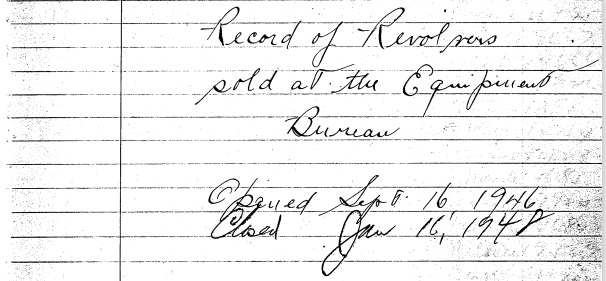 Record of Revolvers
sold at the Equipment
Bureau
Opened Sept. 16 1946
Closed Jan 16, 1948